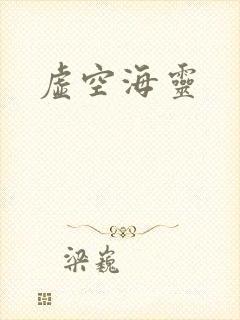 虚空海靈
梁巍